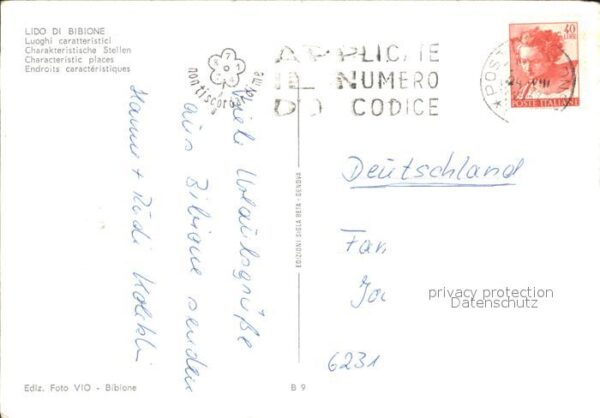 LIDO DI BIBIONE
Luoghi caratteristici
Charakteristische Stellen
Characteristic places
Endroits caractéristiques
APPLICATE
IL NUMERO
DI CODICE
40
LIRE
POSTE ITALIANE
Viele Urlaubsgrüße
aus Bibione senden
Hanne + Rudi
EDIZIONI SIGLA BETA - GENOVA
Deutschland
Fam
privacy protection
Datenschutz
6231
Ediz. Foto VIO - Bibione
B 9